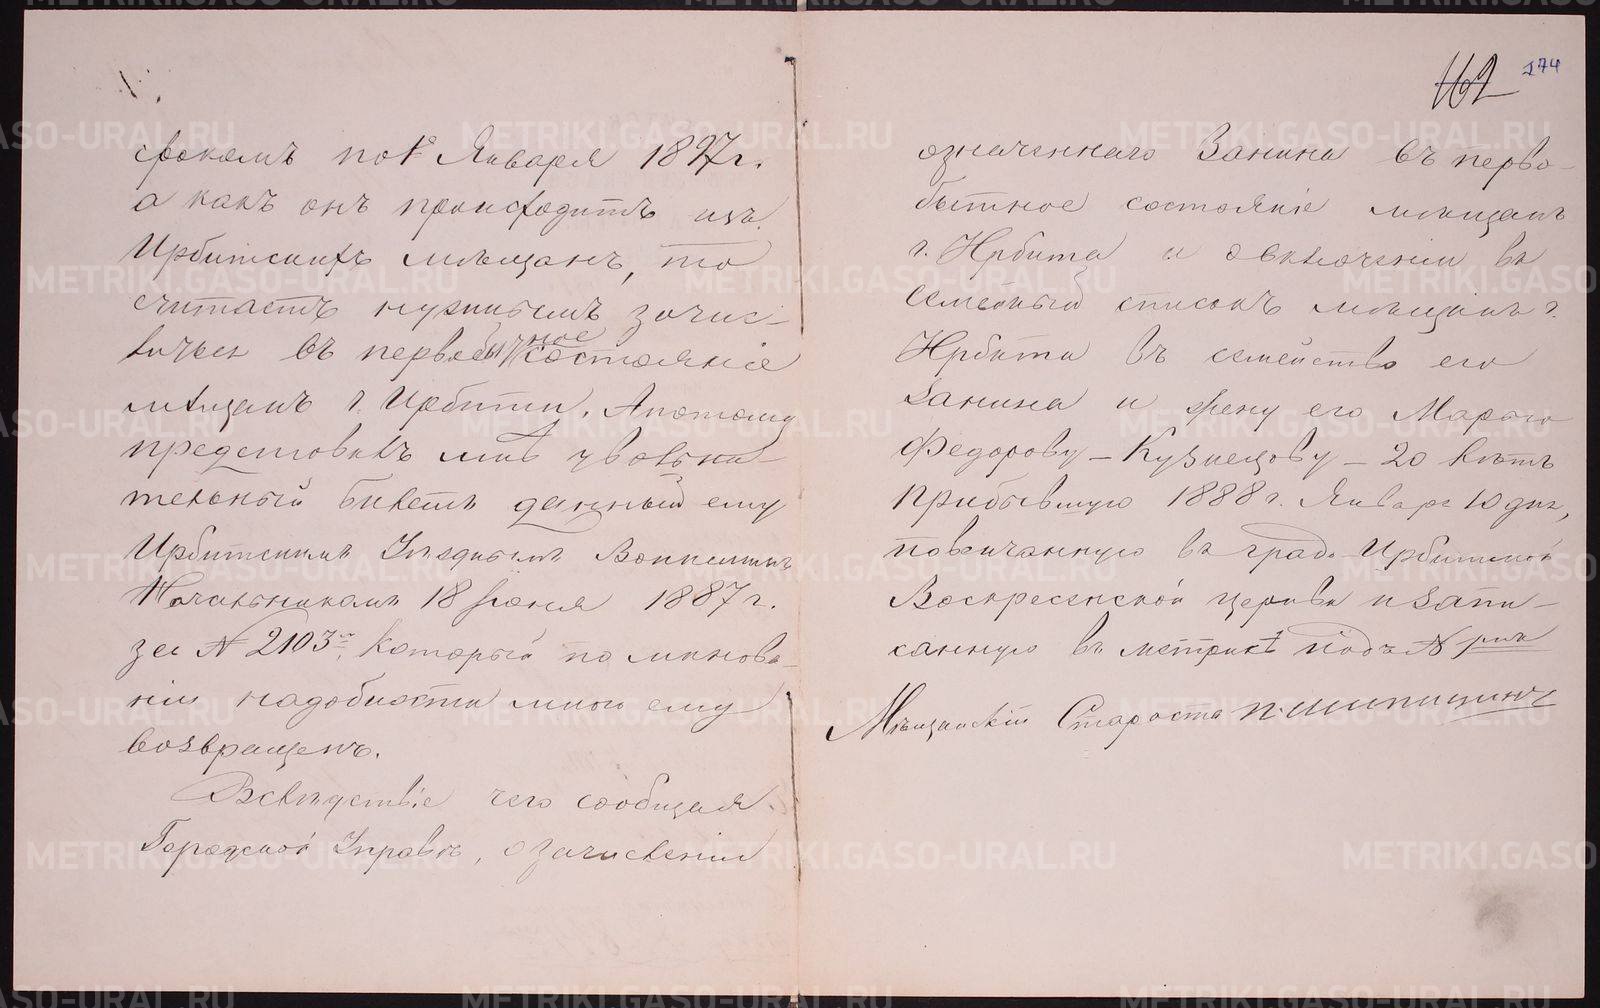 срокомъ по 1е Января 1897 г.
а какъ онъ происходитъ изъ
Ирбитскихъ мѣщанъ, то
считаетъ нужнымъ зачис-
литься въ первобытное состояніе
мѣщанъ г. Ирбити. А потому
представилъ мнѣ увольни-
тельный билетъ данный ему
Ирбитскимъ Уѣзднымъ Воинскимъ
Начальникомъ 18 Іюня 1887 г.
за № 2103м, который по минова-
ніи надобности мною ему
возвращенъ.
Вслѣдствіе чего сообщая
Городской Управѣ, о зачисленіи
162 174
означеннаго Ванина въ перво-
бытное состояніе мѣщанъ
г. Ирбита и о включеніи въ
семейный списокъ мѣщанъ г.
Ирбити въ семейство его
Ванина и жену его Марѳю
Федорову-Кузнецову-20 лѣтъ
прибывшую 1888 г. Января 10 дня,
повенчанную въ градо Ирбитской
Воскресенской церкви и запи-
санную въ метрикѣ подъ №
Мѣщанскій Староста П. Шипицинъ
METRIKI.GASO-URAL.RU